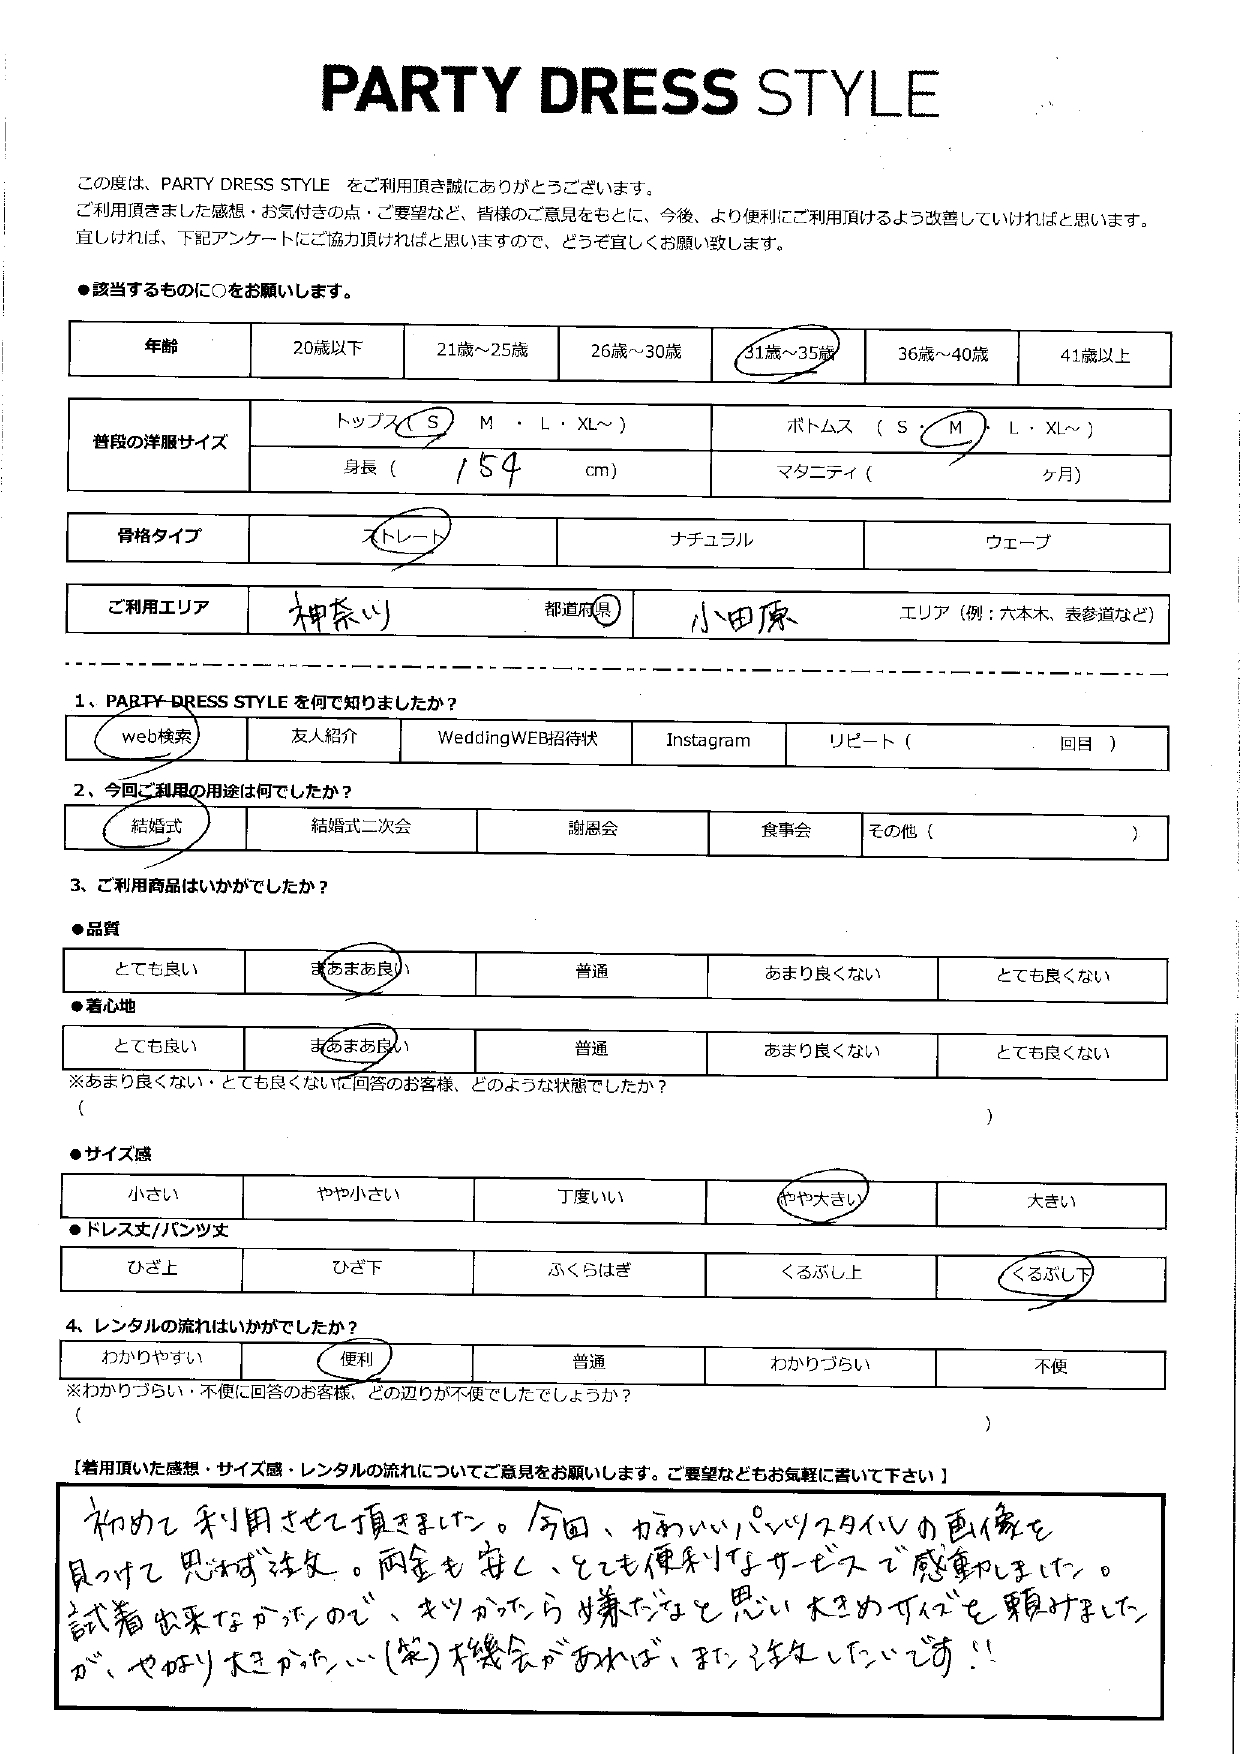 PARTY DRESS STYLE
この度は、PARTY DRESS STYLE をご利用頂き誠にありがとうございます。
ご利用頂きました感想・お気付きの点・ご要望など、皆様のご意見をもとに、今後、より便利にご利用頂けるよう改善していければと思います。
宜しければ、下記アンケートにご協力頂ければと思いますので、どうぞ宜しくお願い致します。
●該当するものに○をお願いします。
年齢 20歳以下 21歳～25歳 26歳～30歳 31歳～35歳 36歳～40歳 41歳以上
普段の洋服サイズ トップス( S M ・ L ・ XL～ ) ボトムス ( S ・ M ・ L ・ XL～ )
身長 ( 154 cm) マタニティ ( ヶ月)
骨格タイプ ストレート ナチュラル ウェーブ
ご利用エリア 神奈川 都道府県 小田原 エリア（例：六本木、表参道など）
1、PARTY DRESS STYLE を何で知りましたか？
web検索 友人紹介 WeddingWEB招待状 Instagram リピート ( 回目 )
2、今回ご利用の用途は何でしたか？
結婚式 結婚式二次会 謝恩会 食事会 その他 ( )
3、ご利用商品はいかがでしたか？
●品質
とても良い まあまあ良い 普通 あまり良くない とても良くない
●着心地
とても良い まあまあ良い 普通 あまり良くない とても良くない
※あまり良くない・とても良くないに回答のお客様、どのような状態でしたか？
( )
●サイズ感
小さい やや小さい 丁度いい やや大きい 大きい
●ドレス丈/パンツ丈
ひざ上 ひざ下 ふくらはぎ くるぶし上 くるぶし下
4、レンタルの流れはいかがでしたか？
わかりやすい 便利 普通 わかりづらい 不便
※わかりづらい・不便に回答のお客様、どの辺りが不便でしたでしょうか？
( )
【着用頂いた感想・サイズ感・レンタルの流れについてご意見をお願いします。ご要望などもお気軽に書いて下さい】
初めて利用させて頂きました。今回、かわいいパンツスタイルの画像を
見つけて思わず注文。両金も安く、とても便利なサービスで感動しました。
試着出来なかったので、キツかったら嫌だなと思い大きめサイズを頼みました
が、やはり大きかった…(笑)機会があれば、また注文したいです!!